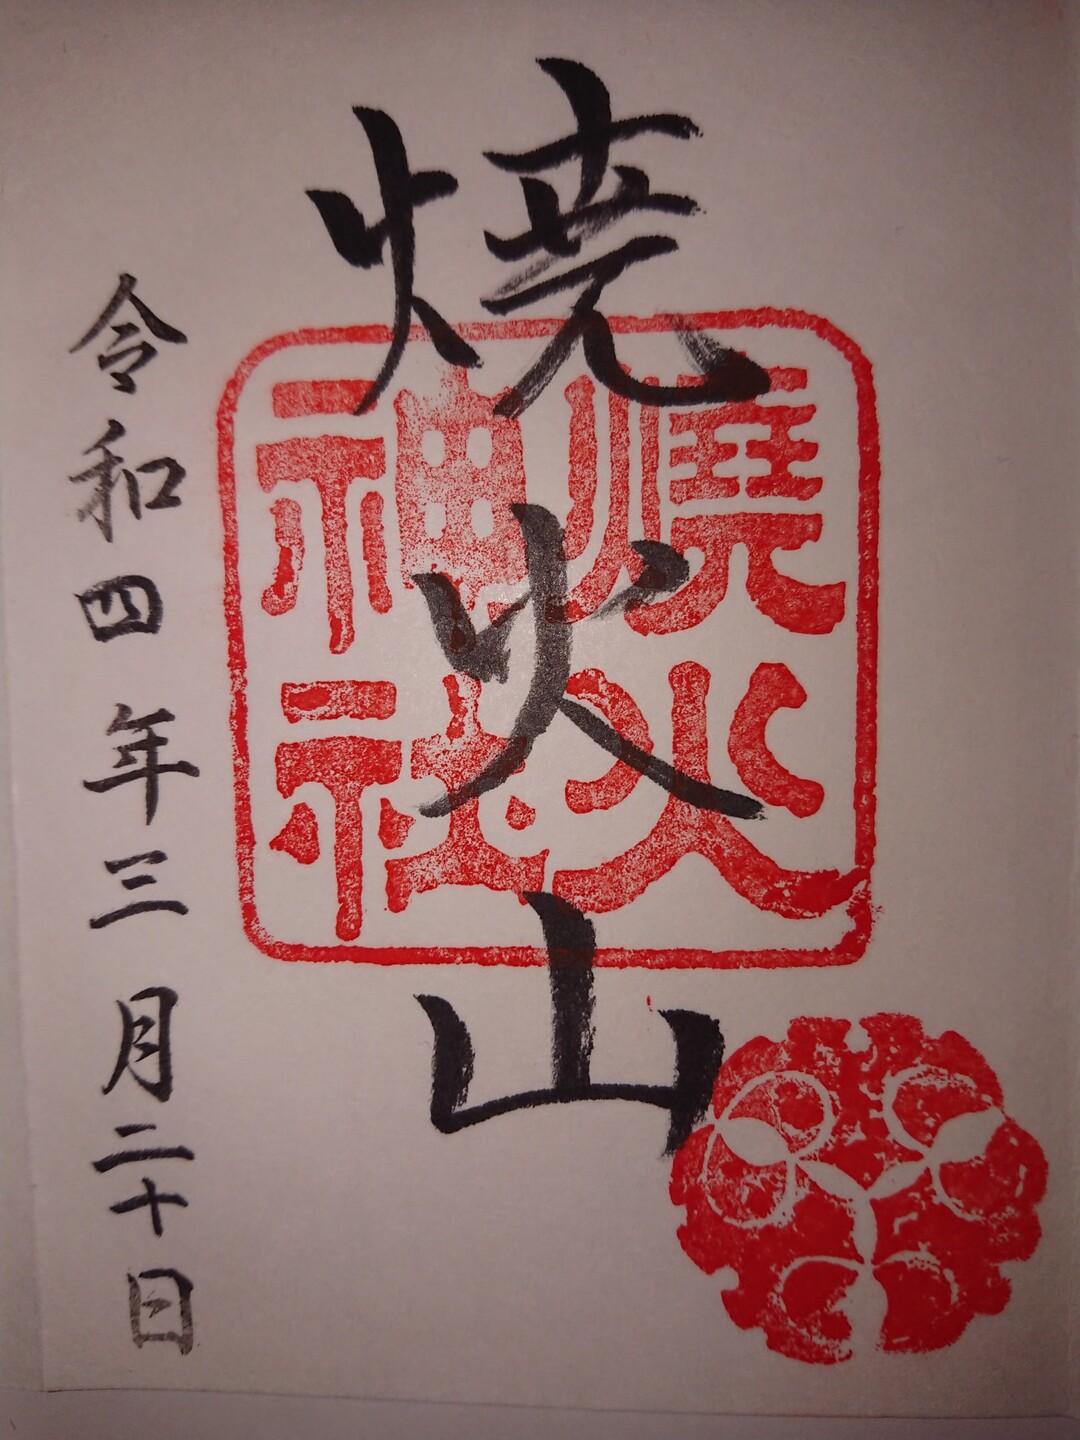 焼火山
燒火
神社
令和四年三月二十日